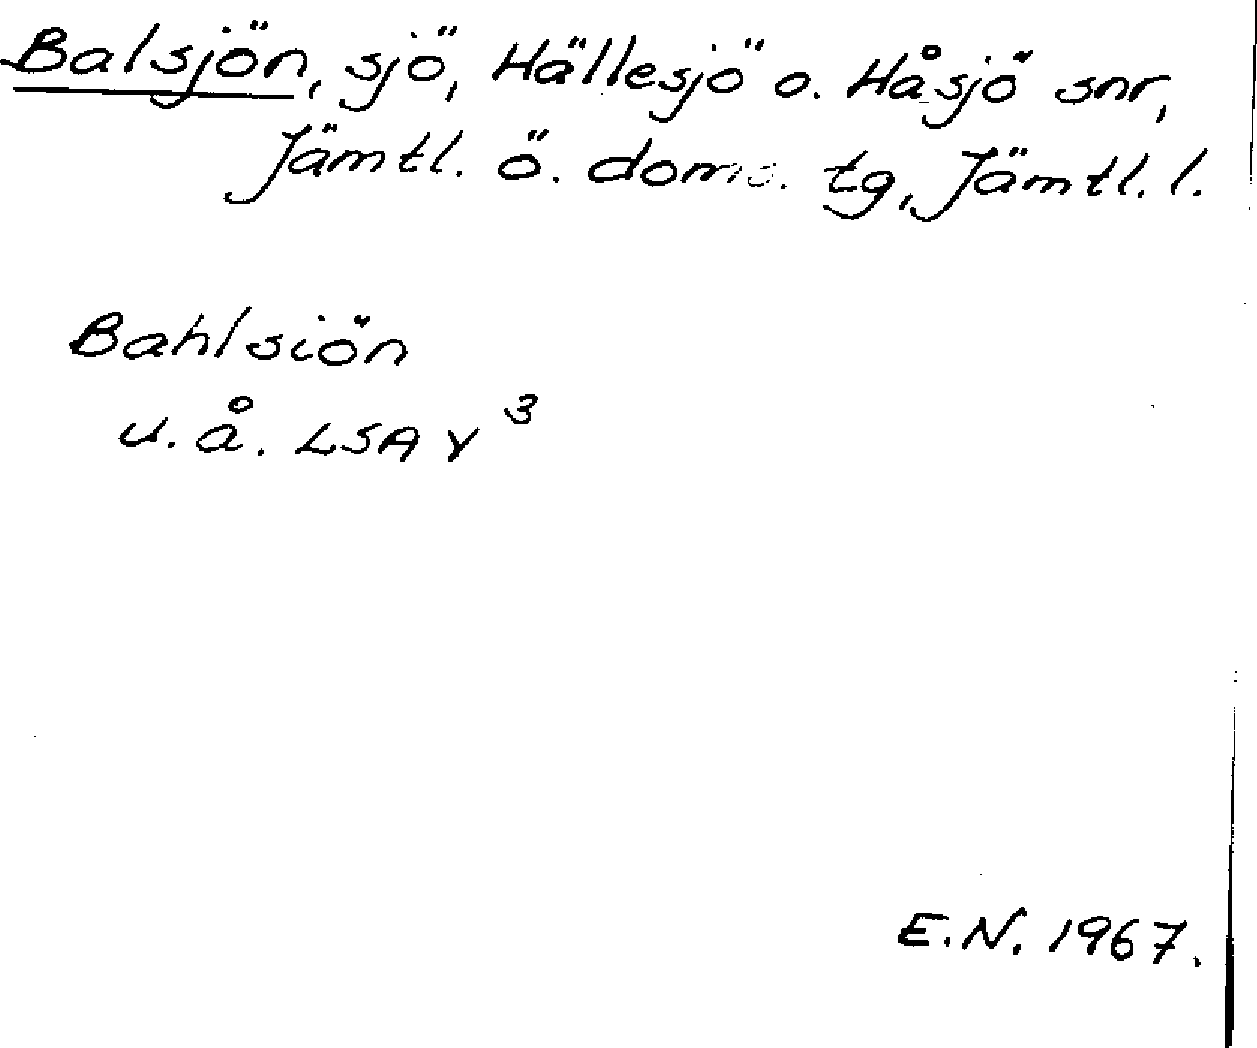 Balsjön, sjö, Hällesjö o. Håsjö snr,
Jämtl. ö. doms. tg, Jämtl. l.
Bahlsiön
u. å. LSA Y 3
E.N. 1967.